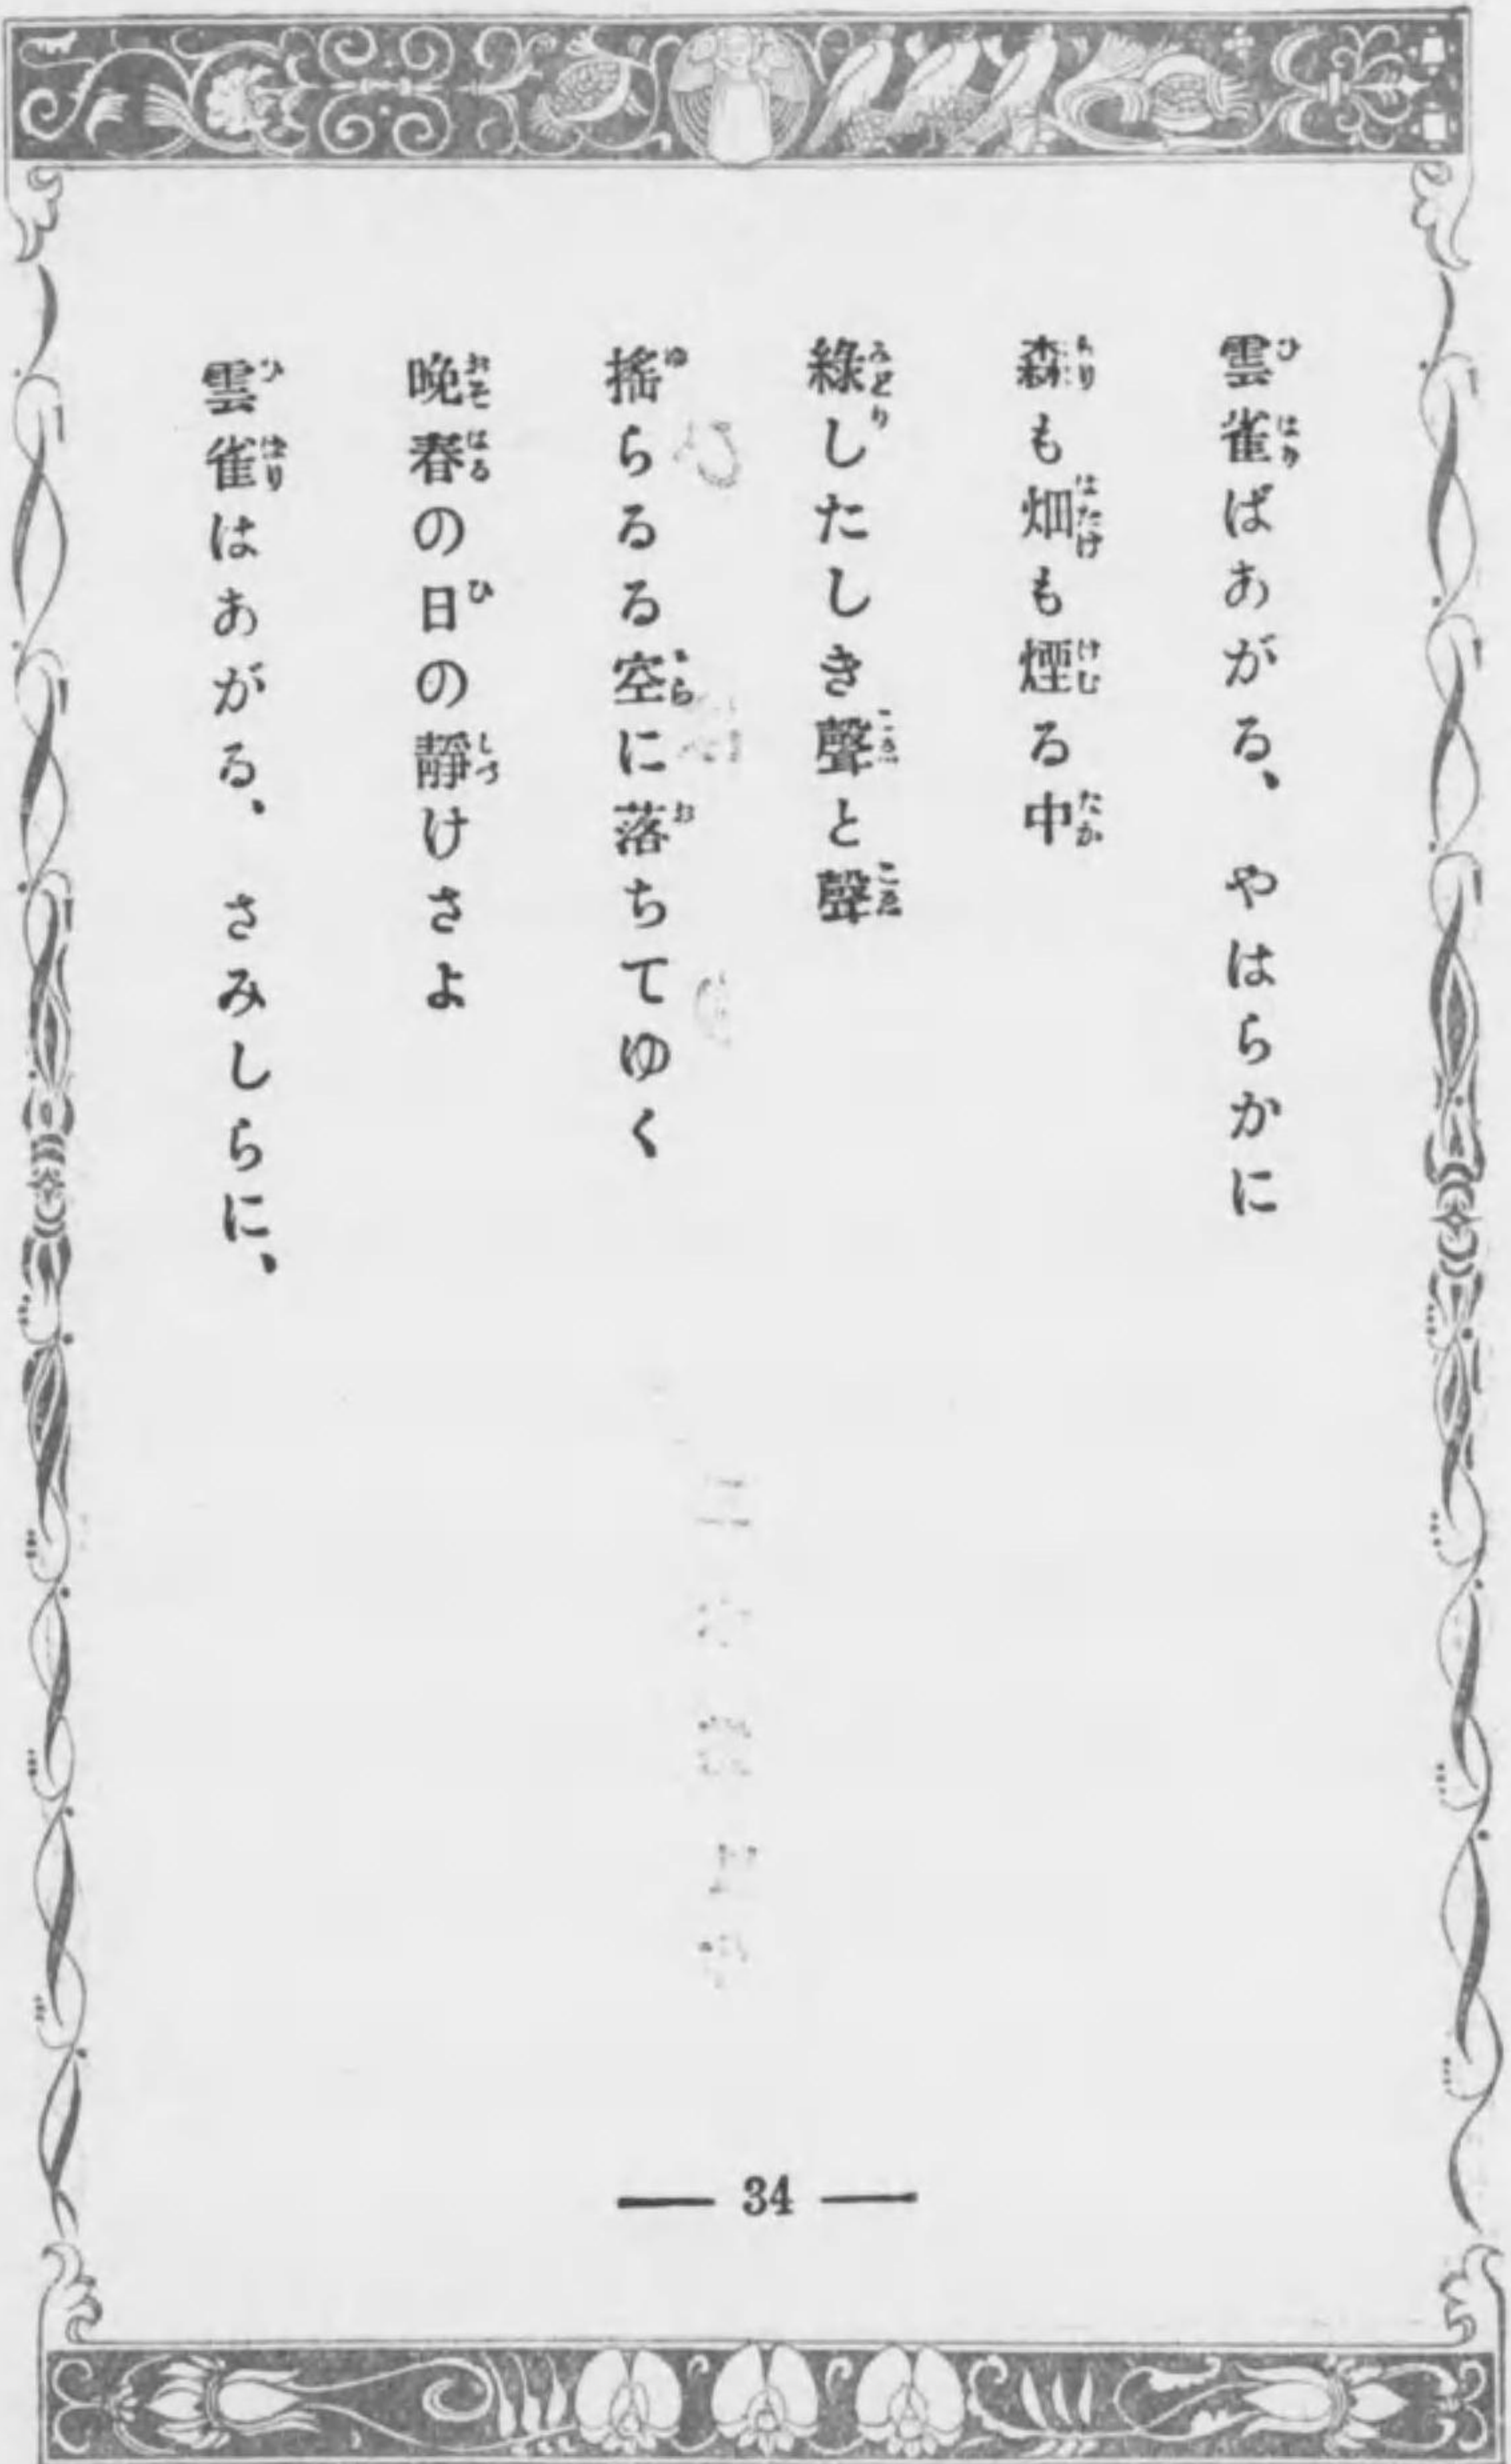 雲雀ばあがる、やはらかに
森も畑も煙る中
綠したしき聲と聲
搖らるる空に落ちてゆく
晩春の日の靜けさよ
雲雀はあがる、さみしらに、
— 34 —